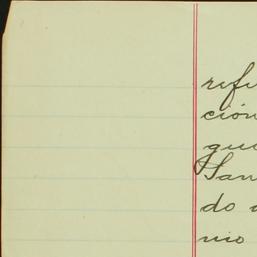 refe
ción
que
San
do
mo